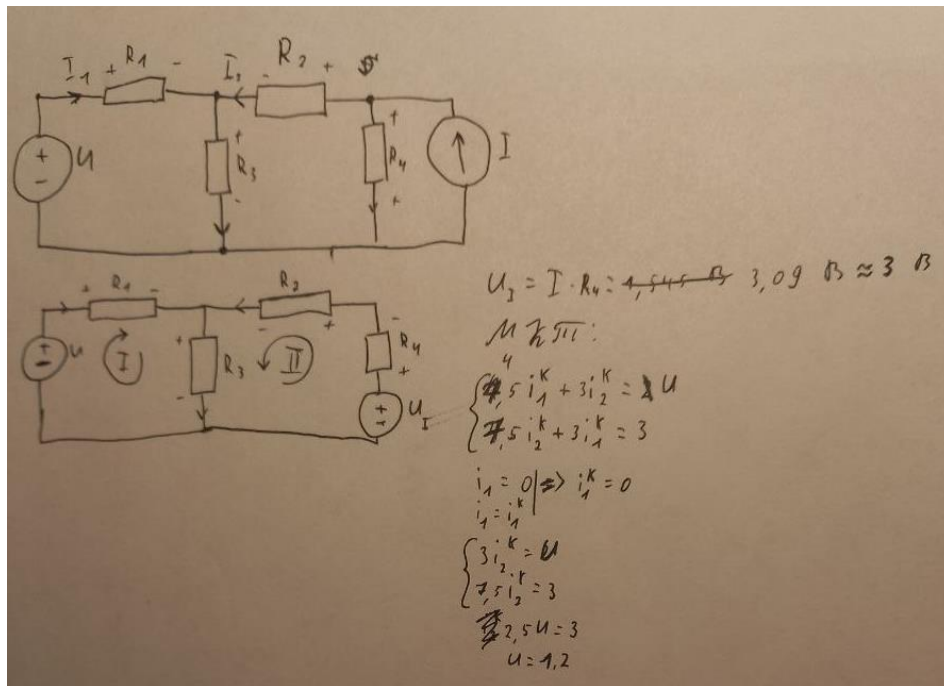 I₁ + R1 - I₂ - R₂ +
+ - U + R₃ - + R₄ + I
+ R1 - R₂
+ - U I + R₃ - II - + - R₄ + + - U_I
U_I = I · R₄ = 1,545 В 3,09 В ≈ 3 В
МКТ:
4,5 i₁ᴷ + 3 i₂ᴷ = U
7,5 i₂ᴷ + 3 i₁ᴷ = 3
i₁ = 0 => i₁ᴷ = 0
i₁ = i₁ᴷ
3 i₂ᴷ = U
7,5 i₂ᴷ = 3
2,5 U = 3
U = 1,2